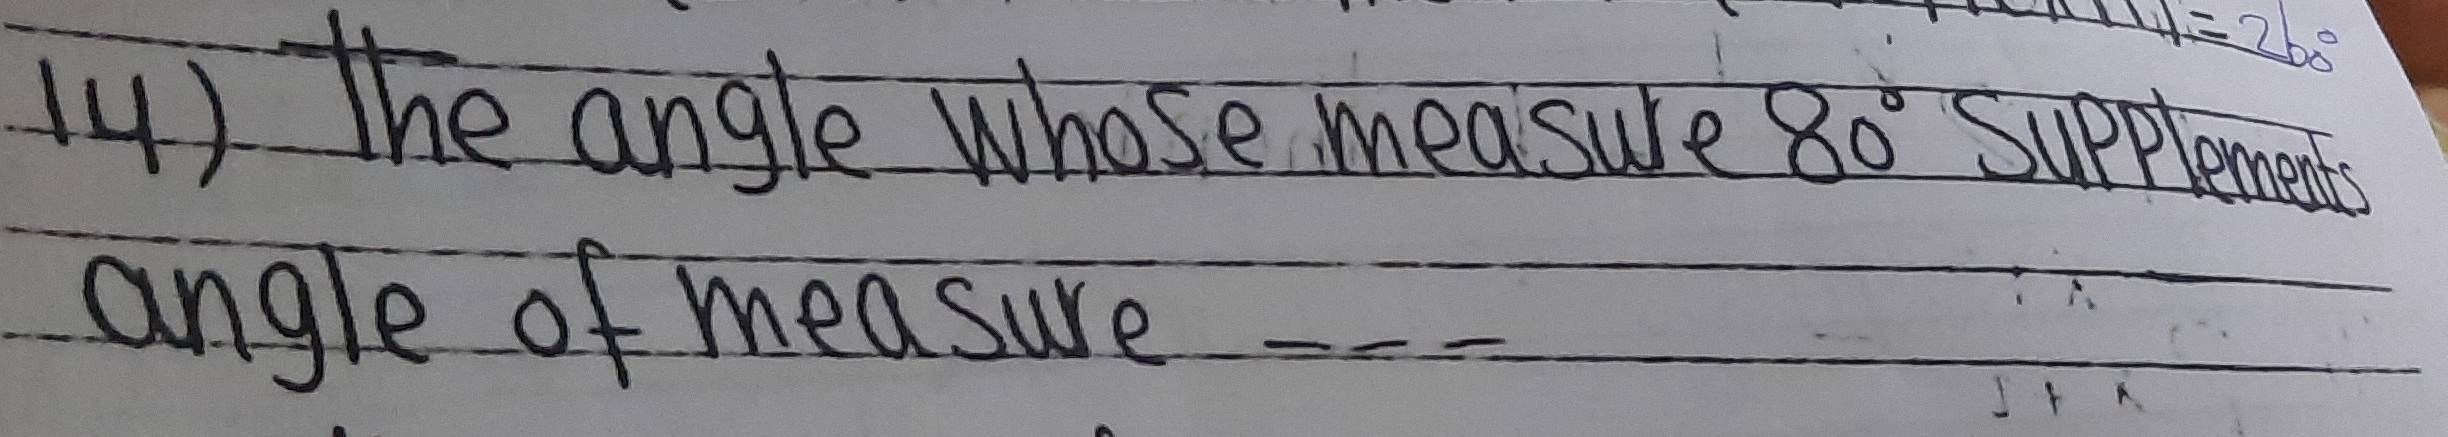 = 260°
14) The angle whose measure 80° supplements
angle of measure ---